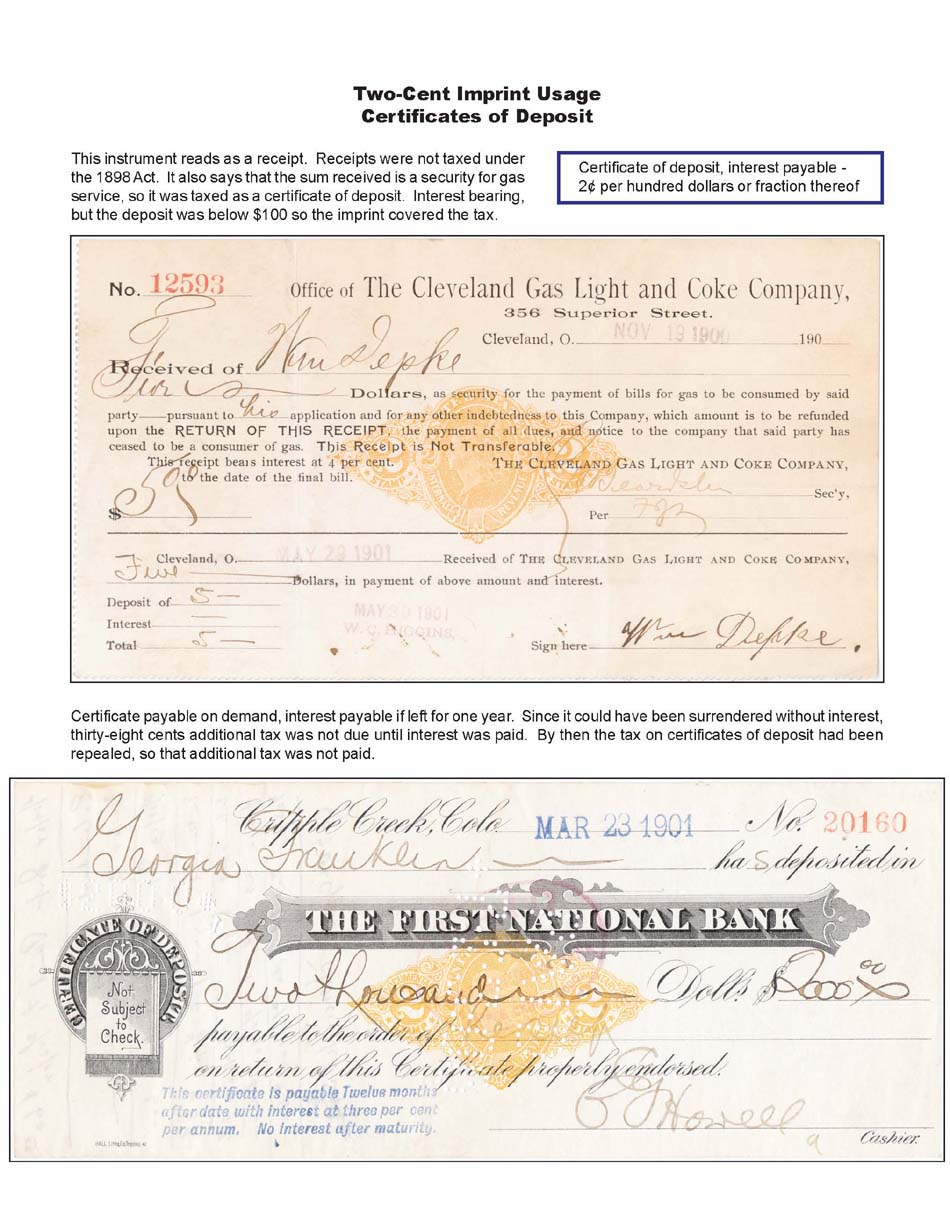 Two-Cent Imprint Usage
Certificates of Deposit
This instrument reads as a receipt. Receipts were not taxed under
the 1898 Act. It also says that the sum received is a security for gas
service, so it was taxed as a certificate of deposit. Interest bearing,
but the deposit was below $100 so the imprint covered the tax.
Certificate of deposit, interest payable -
2¢ per hundred dollars or fraction thereof
No. 12593
Office of The Cleveland Gas Light and Coke Company,
356 Superior Street.
Cleveland, O. NOV 13 1900 190
Received of Wm Depke
Five Dollars, as security for the payment of bills for gas to be consumed by said
party pursuant to his application and for any other indebtedness to this Company, which amount is to be refunded
upon the RETURN OF THIS RECEIPT, the payment of all dues, and notice to the company that said party has
ceased to be a consumer of gas. This Receipt is Not Transferable.
This receipt bears interest at 4 per cent.
to the date of the final bill.
THE CLEVELAND GAS LIGHT AND COKE COMPANY,
Sec'y,
$5
Per
Cleveland, O. MAY 29 1901 Received of THE CLEVELAND GAS LIGHT AND COKE COMPANY,
Five Dollars, in payment of above amount and interest.
Deposit of 5 —
Interest —
Total 5 —
MAY 30 1901
W. C. HIGGINS,
Sign here Wm Depke.
Certificate payable on demand, interest payable if left for one year. Since it could have been surrendered without interest,
thirty-eight cents additional tax was not due until interest was paid. By then the tax on certificates of deposit had been
repealed, so that additional tax was not paid.
Cripple Creek, Colo. MAR 23 1901 No. 20160
Georgia Franklin has deposited in
THE FIRST NATIONAL BANK
CERTIFICATE OF DEPOSIT
Not
Subject
to
Check.
Two thousand Dolls. $2000 00
payable to the order of
on return of this Certificate properly endorsed.
This certificate is payable Twelve months
after date with interest at three per cent
per annum. No interest after maturity.
Howell
Cashier.